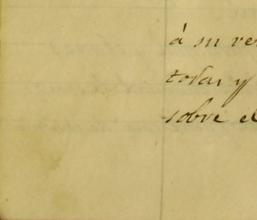 á su ve
todas y
sobre el